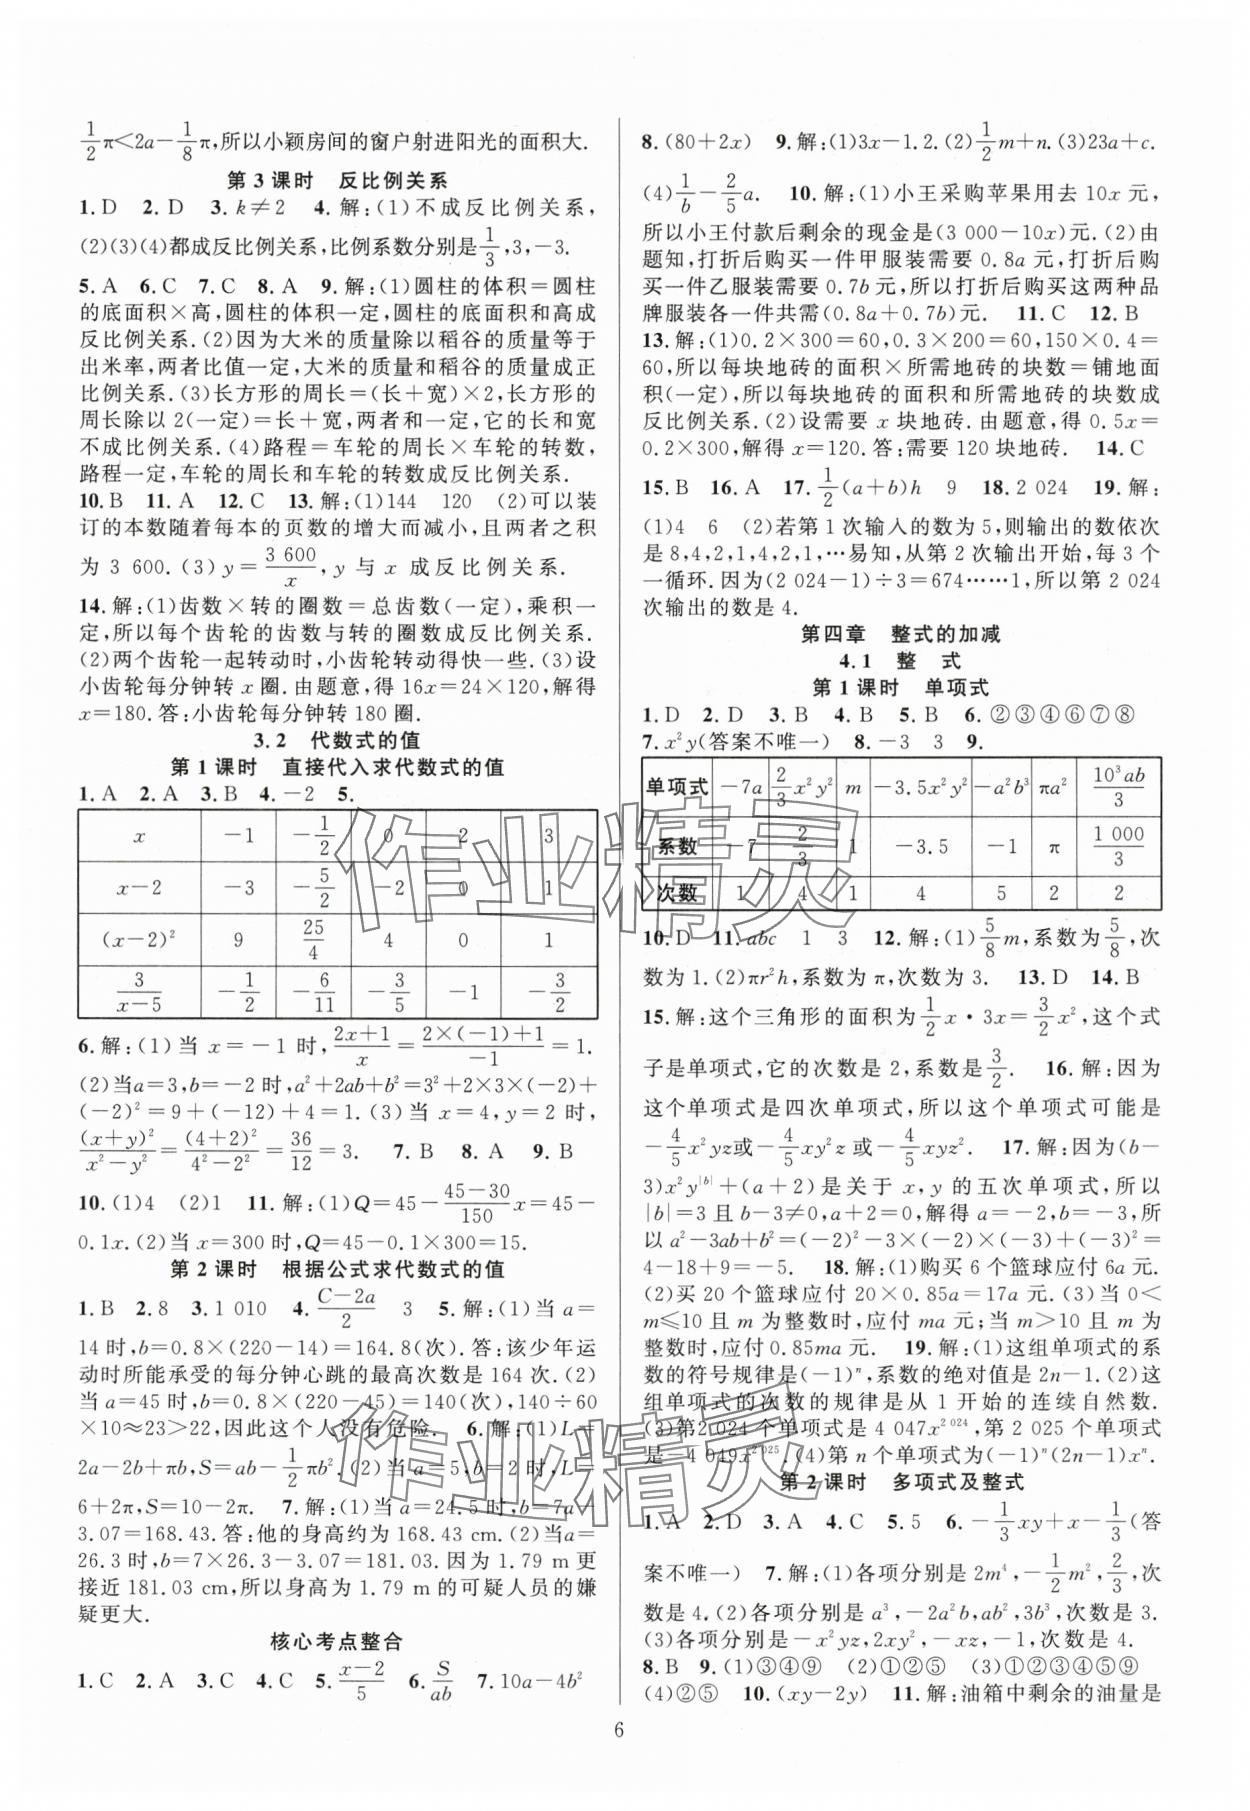 1/2π<2a-1/8π,所以小颖房间的窗户射进阳光的面积大.
第3课时 反比例关系
1.D 2.D 3.k≠2 4.解:(1)不成反比例关系,
(2)(3)(4)都成反比例关系,比例系数分别是1/3,3,-3.
5.A 6.C 7.C 8.A 9.解:(1)圆柱的体积=圆柱
的底面积×高,圆柱的体积一定,圆柱的底面积和高成
反比例关系.(2)因为大米的质量除以稻谷的质量等于
出米率,两者比值一定,大米的质量和稻谷的质量成正
比例关系.(3)长方形的周长=(长+宽)×2,长方形的
周长除以2(一定)=长+宽,两者和一定,它的长和宽
不成比例关系.(4)路程=车轮的周长×车轮的转数,
路程一定,车轮的周长和车轮的转数成反比例关系.
10.B 11.A 12.C 13.解:(1)144 120 (2)可以装
订的本数随着每本的页数的增大而减小,且两者之积
为 3 600.(3)y=3 600/x,y 与 x 成反比例关系.
14.解:(1)齿数×转的圈数=总齿数(一定),乘积一
定,所以每个齿轮的齿数与转的圈数成反比例关系.
(2)两个齿轮一起转动时,小齿轮转得快一些.(3)设
小齿轮每分钟转 x 圈.由题意,得 16x=24×120,解得
x=180.答:小齿轮每分钟转 180 圈.
3.2 代数式的值
第1课时 直接代入求代数式的值
1.A 2.A 3.B 4.-2 5.
x -1 -1/2 0 2 3
x-2 -3 -5/2 -2 0 1
(x-2)² 9 25/4 4 0 1
3/(x-5) -1/2 -6/11 -3/5 -1 -3/2
6.解:(1)当 x=-1 时,(2x+1)/x=(2×(-1)+1)/(-1)=1.
(2)当a=3,b=-2 时,a²+2ab+b²=3²+2×3×(-2)+
(-2)²=9+(-12)+4=1.(3)当 x=4,y=2 时,
(x+y)²/(x²-y²)=(4+2)²/(4²-2²)=36/12=3. 7.B 8.A 9.B
10.(1)4 (2)1 11.解:(1)Q=45-(45-30)/150x=45-
0.1x.(2)当x=300 时,Q=45-0.1×300=15.
第2课时 根据公式求代数式的值
1.B 2.8 3.1 010 4.(C-2a)/2 3 5.解:(1)当 a=
14 时,b=0.8×(220-14)=164.8(次).答:该少年运
动时所能承受的每分钟心跳的最高次数是 164 次.(2)
当a=45 时,b=0.8×(220-45)=140(次),140÷60
×10≈23>22,因此这个人没有危险. 6.解:(1)L=
2a-2b+πb,S=ab-1/2πb².(2)当a=5,b=2 时,L=
6+2π,S=10-2π. 7.解:(1)当a=24.5 时,b=7a-
3.07=168.43.答:他的身高约为 168.43 cm.(2)当a=
26.3 时,b=7×26.3-3.07=181.03.因为 1.79 m 更
接近 181.03 cm,所以身高为 1.79 m 的可疑人员的嫌
疑更大.
核心考点整合
1.C 2.A 3.C 4.C 5.(x-2)/5 6.S/ab 7.10a-4b²
8.(80+2x) 9.解:(1)3x-1.2.(2)1/2m+n.(3)23a+c.
(4)1/b-2/5a. 10.解:(1)小王采购苹果用去 10x 元,
所以小王付款后剩余的现金是(3 000-10x)元.(2)由
题知,打折后购买一件甲服装需要 0.8a 元,打折后购
买一件乙服装需要 0.7b 元,所以打折后购买这两种品
牌服装各一件共需(0.8a+0.7b)元. 11.C 12.B
13.解:(1)0.2×300=60,0.3×200=60,150×0.4=
60,所以每块地砖的面积×所需地砖的块数=铺地面
积(一定),所以每块地砖的面积和所需地砖的块数成
反比例关系.(2)设需要 x 块地砖.由题意,得 0.5x=
0.2×300,解得 x=120.答:需要 120 块地砖. 14.C
15.B 16.A 17.1/2(a+b)h 9 18.2 024 19.解:
(1)4 6 (2)若第 1 次输入的数为 5,则输出的数依次
是 8,4,2,1,4,2,1,…易知,从第 2 次输出开始,每 3 个
一循环.因为(2 024-1)÷3=674……1,所以第 2 024
次输出的数是 4.
第四章 整式的加减
4.1 整 式
第1课时 单项式
1.D 2.D 3.B 4.B 5.B 6.②③④⑥⑦⑧
7.x²y(答案不唯一) 8.-3 3 9.
单项式 -7a 2/3x²y² m -3.5x²y² -a²b³ πa² 10³ab/3
系数 -7 2/3 1 -3.5 -1 π 1 000/3
次数 1 4 1 4 5 2 2
10.D 11.abc 1 3 12.解:(1)5/8m,系数为5/8,次
数为 1.(2)πr²h,系数为 π,次数为 3. 13.D 14.B
15.解:这个三角形的面积为1/2x·3x=3/2x²,这个式
子是单项式,它的次数是 2,系数是3/2. 16.解:因为
这个单项式是四次单项式,所以这个单项式可能是
-4/5x²yz或-4/5xy²z 或-4/5xyz². 17.解:因为(b-
3)x²y^|b|+(a+2)是关于 x,y 的五次单项式,所以
|b|=3 且 b-3≠0,a+2=0,解得 a=-2,b=-3,所
以 a²-3ab+b²=(-2)²-3×(-2)×(-3)+(-3)²=
4-18+9=-5. 18.解:(1)购买 6 个篮球应付 6a 元.
(2)买 20 个篮球应付 20×0.85a=17a 元.(3)当 0<
m≤10 且 m 为整数时,应付 ma 元;当 m>10 且 m 为
整数时,应付 0.85ma 元. 19.解:(1)这组单项式的系
数的符号规律是(-1)ⁿ,系数的绝对值是 2n-1.(2)这
组单项式的次数的规律是从 1 开始的连续自然数.
(3)第2 024 个单项式是 4 047x^2 024,第 2 025 个单项
式是-4 049x^2 025.(4)第 n 个单项式为(-1)ⁿ(2n-1)xⁿ.
第2课时 多项式及整式
1.A 2.D 3.A 4.C 5.5 6.-1/3xy+x-1/3(答
案不唯一) 7.解:(1)各项分别是 2m⁴,-1/2m²,2/3,次
数是 4.(2)各项分别是 a³,-2a²b,ab²,3b³,次数是 3.
(3)各项分别是-x²yz,2xy²,-xz,-1,次数是 4.
8.B 9.(1)③④⑨ (2)①②⑤ (3)①②③④⑤⑨
(4)②⑤ 10.(xy-2y) 11.解:油箱中剩余的油量是
6
作业精灵
作业精灵